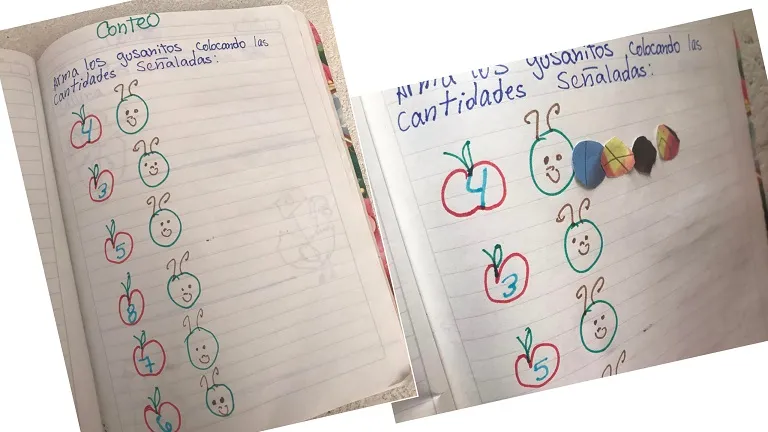 Conteo
Arma los gusanitos colocando las
cantidades señaladas:
4
3
5
8
7
6
Arma los gusanitos colocando las
cantidades señaladas:
4
3
5